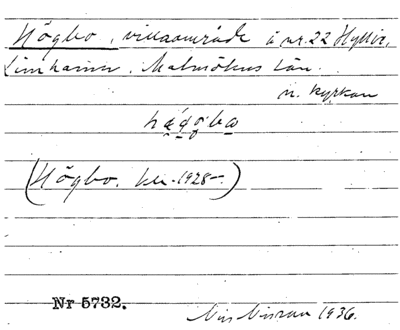 Högbo, villaområde å nr. 22 Hyllie,
Limhamn. Malmöhus län.
n. kyrkan
(Högbo. kr. 1928-.)
Nr 5732.
Nils Nilsson 1936.